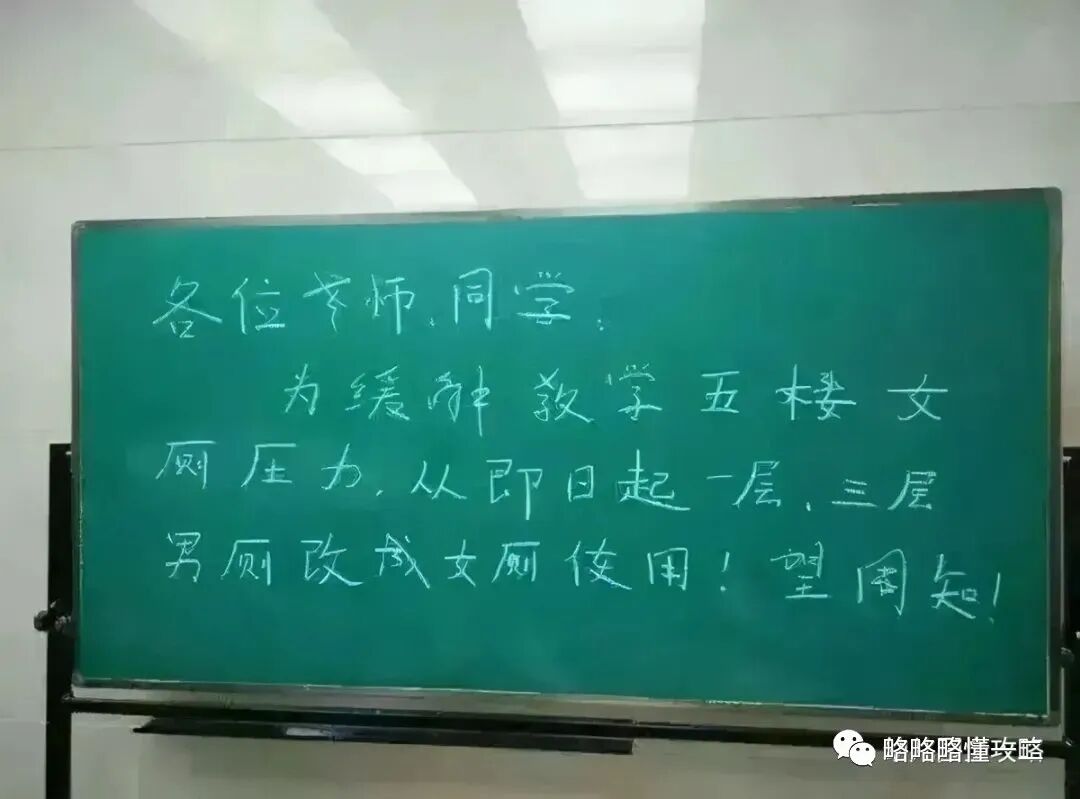 各位老师、同学：
为缓解教学五楼女
厕压力，从即日起一层、三层
男厕改成女厕使用！望周知！
略略略懂攻略